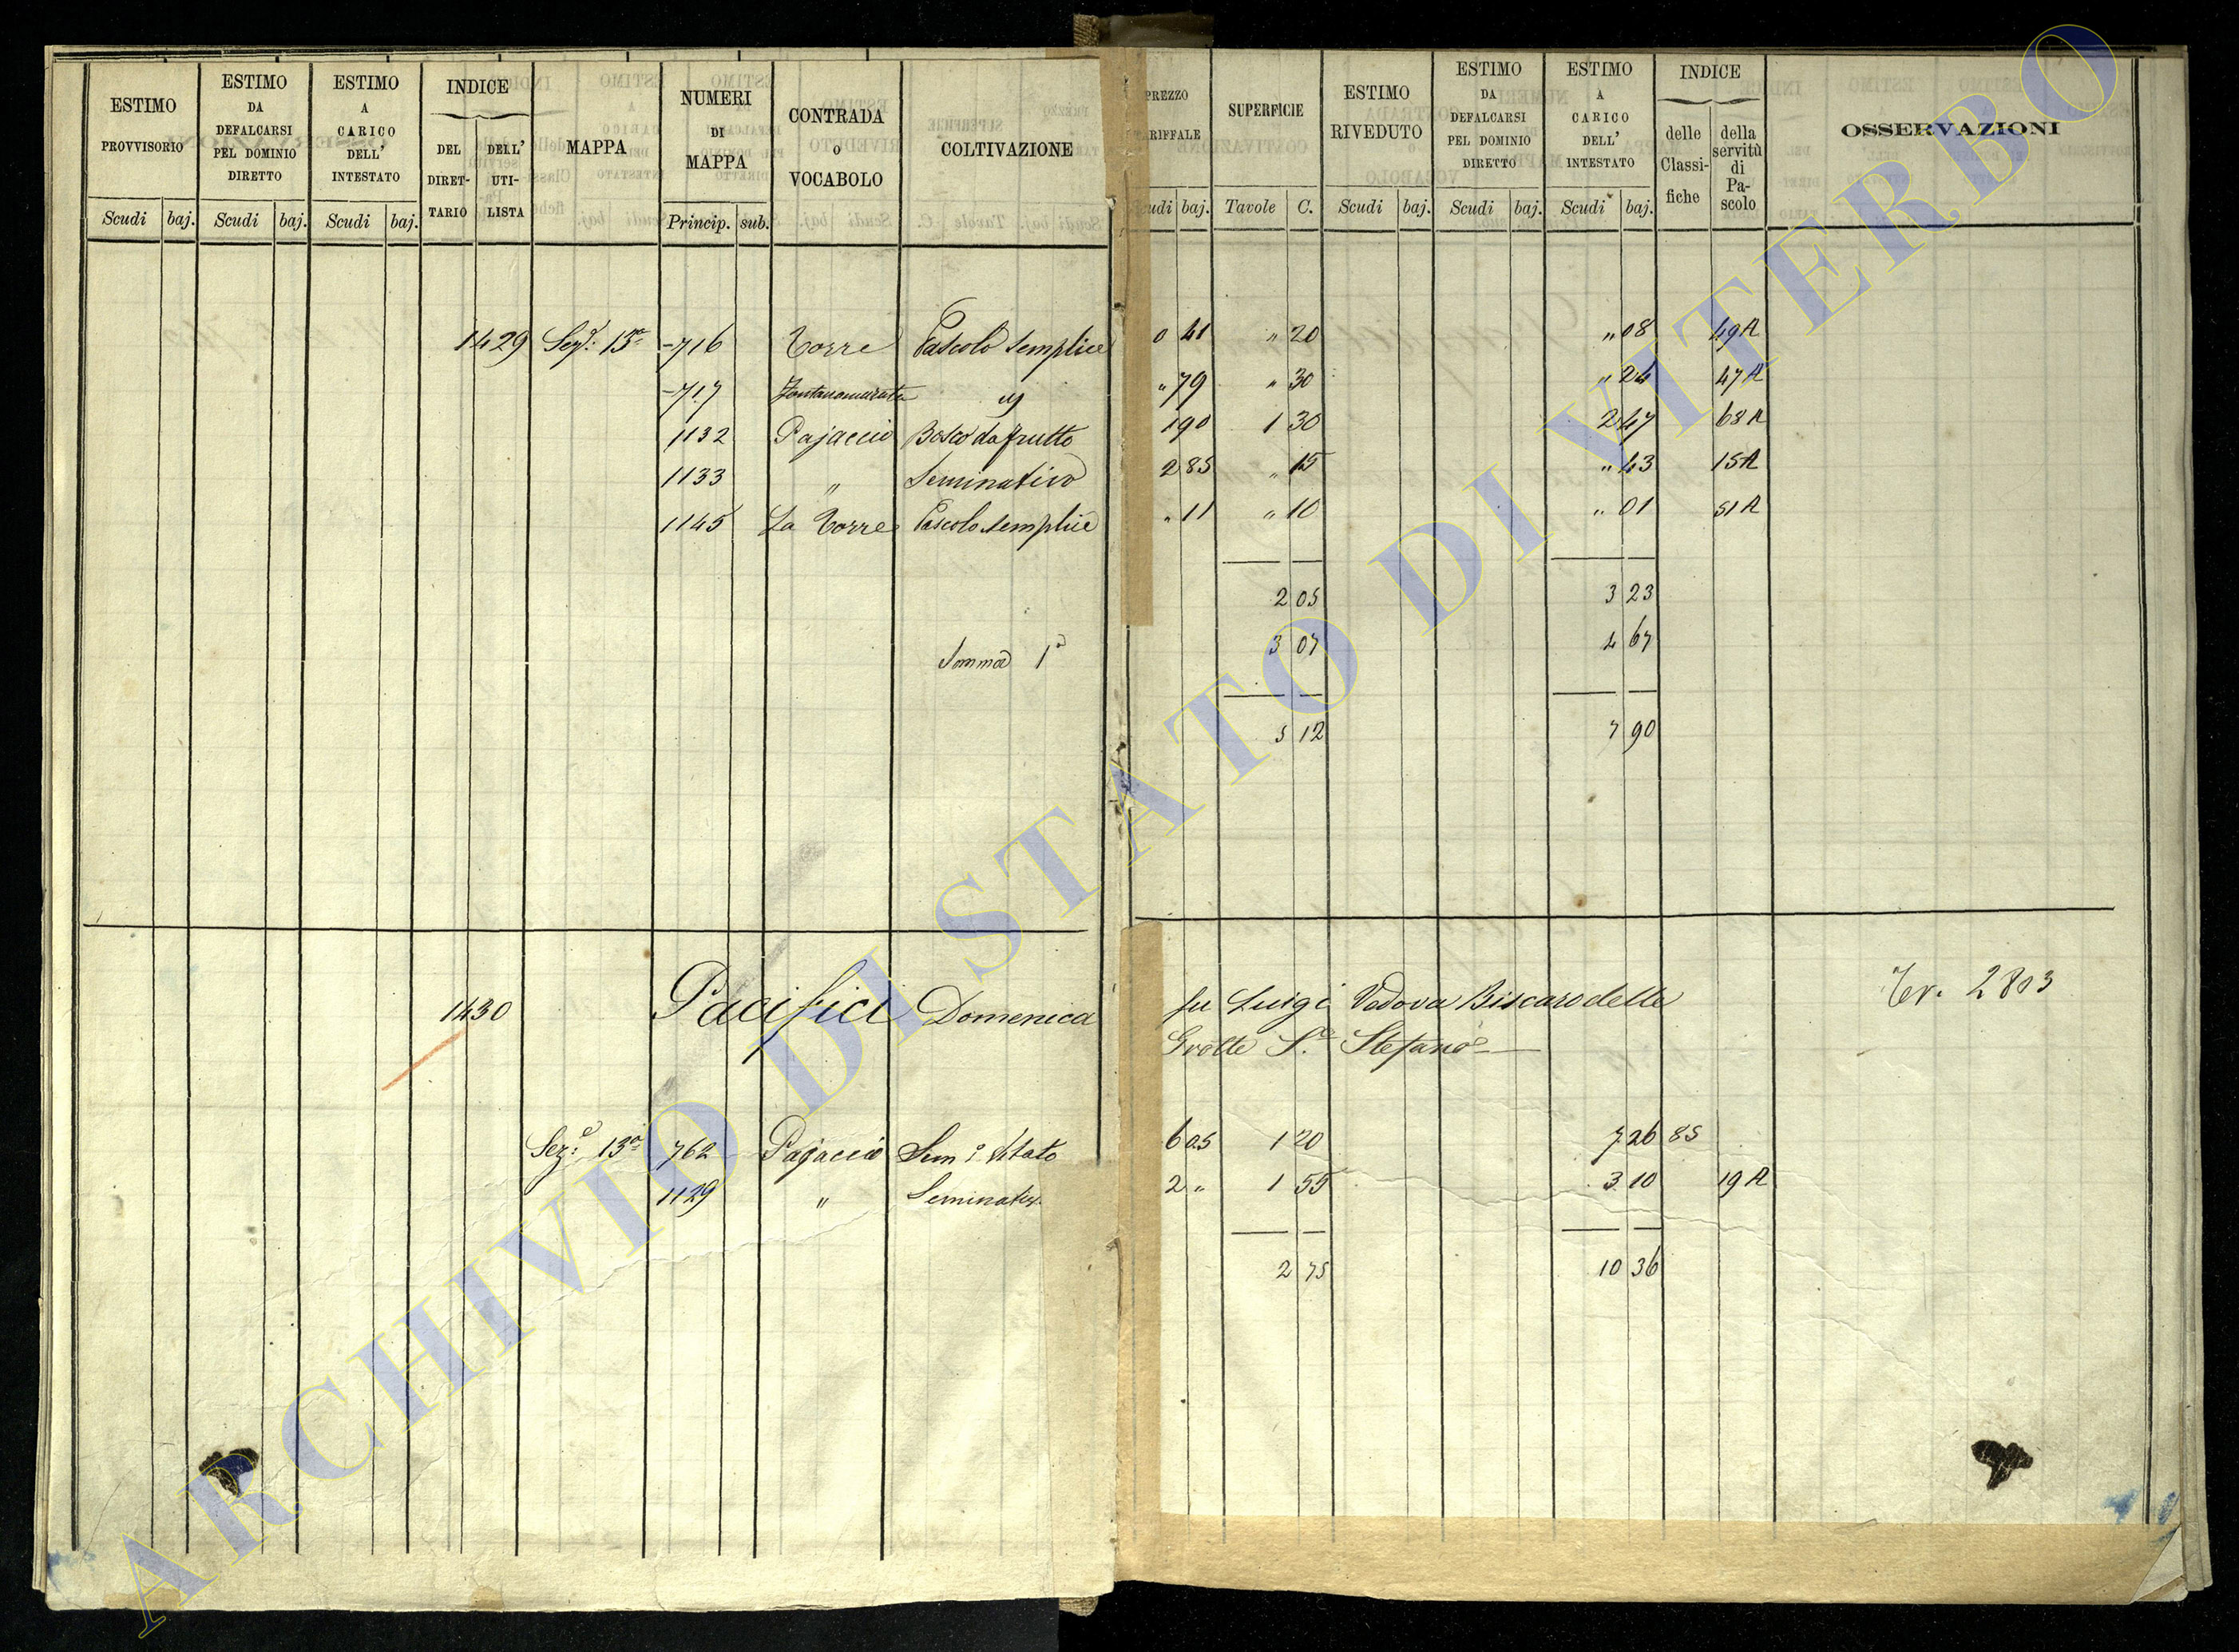 ESTIMO PROVVISORIO Scudi baj.
ESTIMO DA DEFALCARSI PEL DOMINIO DIRETTO Scudi baj.
ESTIMO A CARICO DELL' INTESTATO Scudi baj.
INDICE DEL DIRET-TARIO DELL' UTI-LISTA
MAPPA
NUMERI DI MAPPA Princip. sub.
CONTRADA O VOCABOLO
COLTIVAZIONE
PREZZO baj.
SUPERFICIE Tavole C.
ESTIMO RIVEDUTO Scudi baj.
ESTIMO DA DEFALCARSI PEL DOMINIO DIRETTO Scudi baj.
ESTIMO A CARICO DELL' INTESTATO Scudi baj.
INDICE delle Classi-fiche della servitù di Pa-scolo
OSSERVAZIONI
1429 Sez.e 13a 716 Torre Pascolo semplice 0 41 " 20 " 08 49 A
717 Fontanamurata " 79 " 30 " 24 47 A
1132 Pajaccio Bosco da frutto 1 90 1 30 2 47 68 A
1133 " Seminativo 2 85 " 15 " 43 15 A
1145 La Torre Pascolo semplice " 11 " 10 " 01 51 A
2 05 3 23
Somma 1a 3 07 4 67
5 12 7 90
1430 Pacifici Domenica fu Luigi Vedova Biscaro delle Tev. 2803
Grotte S.o Stefano
Sez.e 13a 762 Pajaccio Sem.o Vitato 6 05 1 20 7 26 85
1129 " Seminativ. 2 " 1 55 3 10 19 A
2 75 10 36
ARCHIVIO DI STATO DI VITERBO